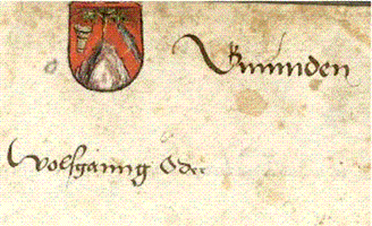 Gmunden
Wolfganng Oder